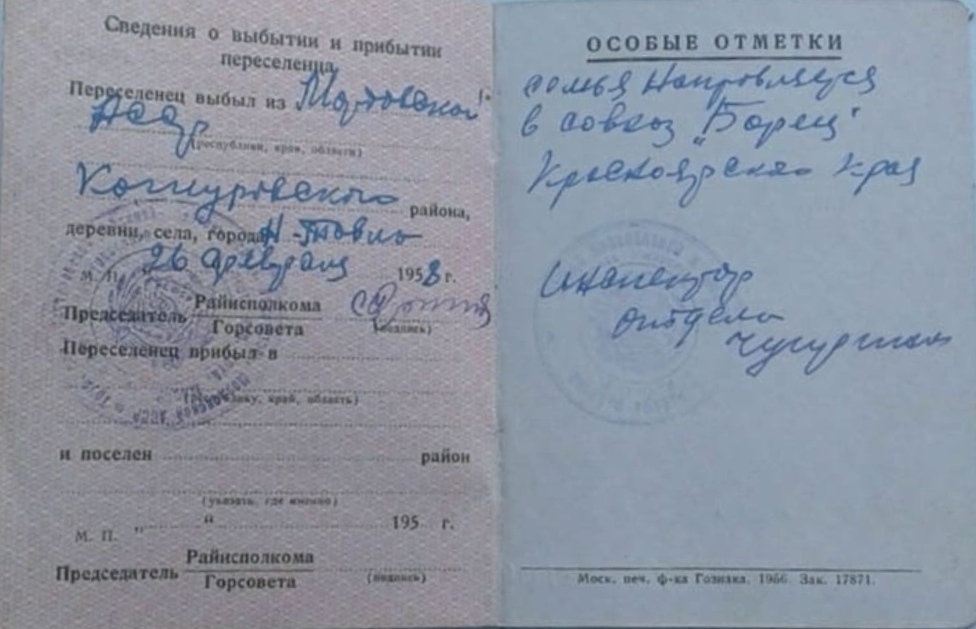 Сведения о выбытии и прибытии
переселенца
Переселенец выбыл из Мордовской
АССР
(республики, края, области)
Кочкуровского района,
деревни, села, города Н-Тавла
М. П. 26 февраля 1958 г.
Председатель Райисполкома
Горсовета
(подпись)
Переселенец прибыл в
(республику, край, область)
и поселен район
(указать, где именно)
М. П. " " 195 г.
Председатель Райисполкома
Горсовета
(подпись)
ОСОБЫЕ ОТМЕТКИ
семья направляется
в совхоз „Борец"
Красноярского края
Инспектор
отдела
Моск. печ. ф-ка Гознака. 1956. Зак. 17871.